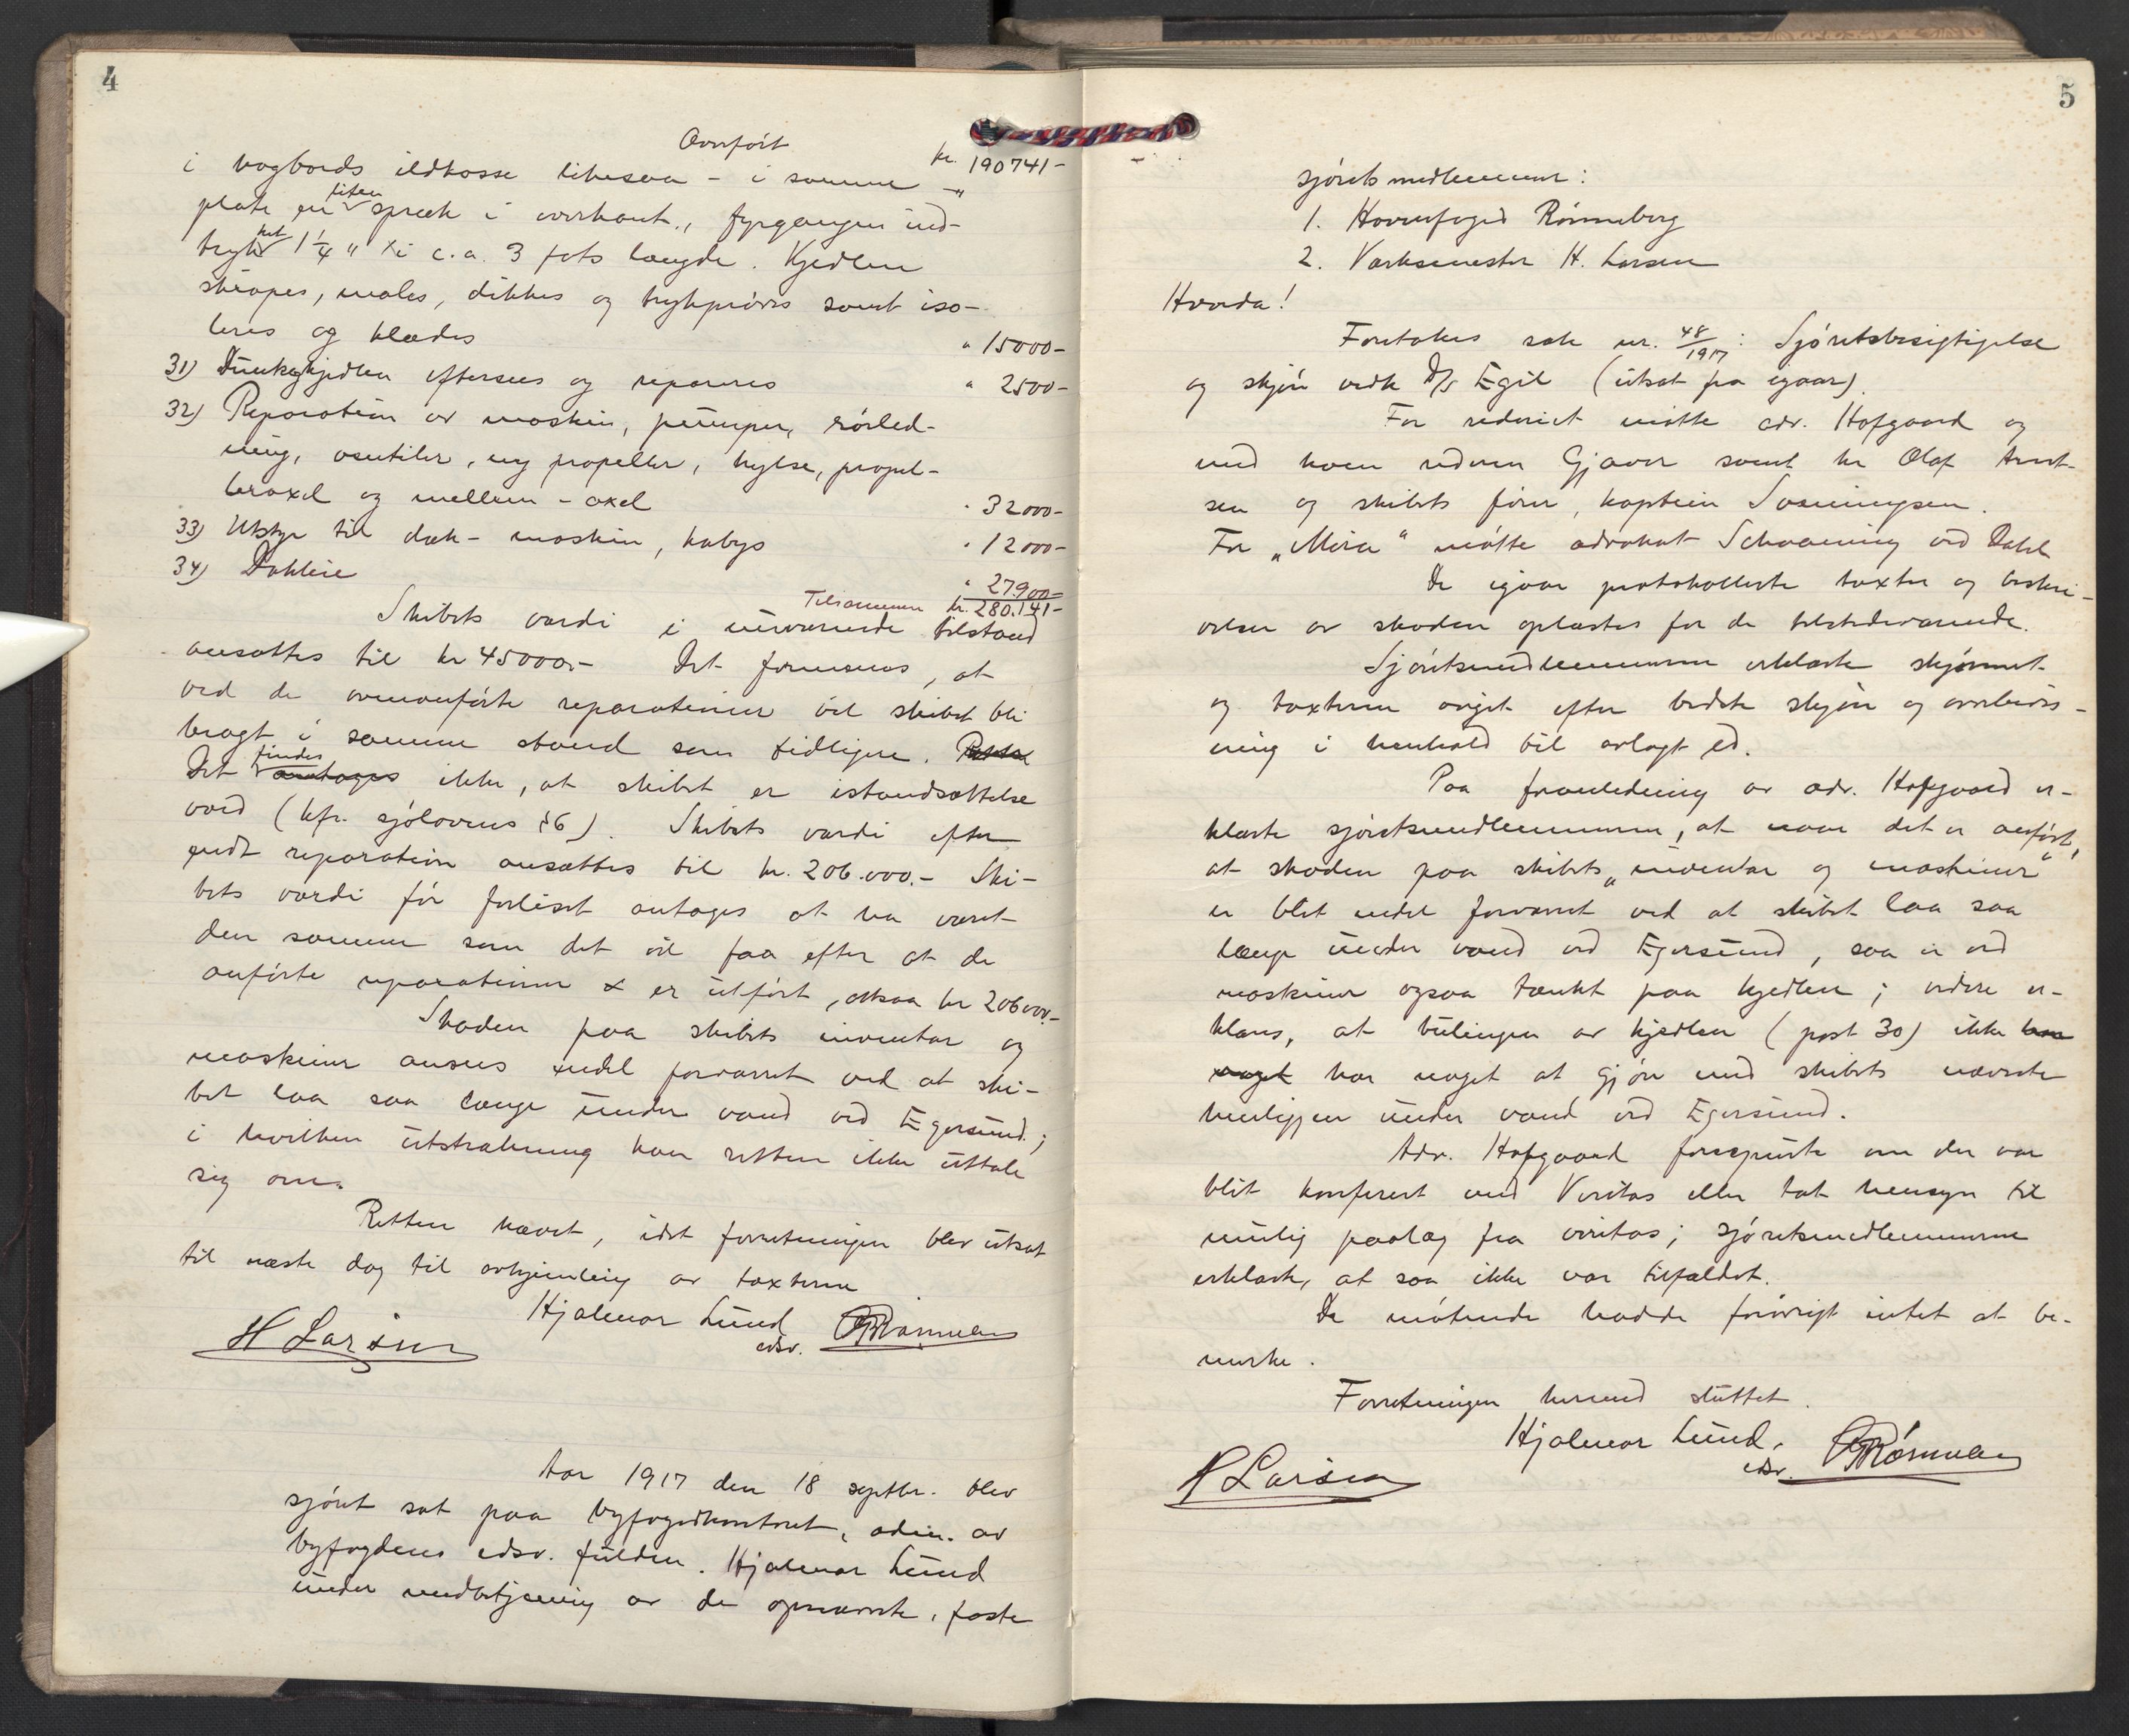 4
Overført kr. 190741-
i bagbords ildkasse likesaa - i samme -"
plate en liten spræk i overkant., fyrgangen ind-
trykket 1 1/4 " i c.a. 3 fots længde. Kjedlen
skrapes, males, dikkes og trykprøves samt iso-
leres og klædes " 15000-
31) Dunkeykjedlen eftersees og repareres " 2500-
32) Reparation av maskin, pumper, rørled-
ning, ventiler, ny propeller, hylse, propel-
leraxel og mellem-axel " 32000-
33) Utstyr til dæk-maskin, kabys " 12000-
34) Dokleie " 27900-
Tilsammen kr. 280.141-
Skibets værdi i nuværende tilstand
ansættes til kr 45000.- Det formenes, at
ved de ovenanførte reparationer vil skibet bli
bragt i samme stand som tidligere.
Det findes antages ikke, at skibet er istandsættelse
værd (kfr. sjølovens §6). Skibets værdi efter
endt reparation ansættes til kr. 206.000.- Ski-
bets værdi før forliset antages at ha været
den samme som det vil faa efter at de
anførte reparationer er utført, altsaa kr 206000.-
Skaden paa skibets inventar og
maskiner ansees endel forværret ved at ski-
bet laa saa længe under vand ved Egersund;
i hvilken utstrækning kan retten ikke uttale
sig om.
Retten hævet, idet forretningen blev utsat
til næste dag til avhjemling av taxterne
H Larsen Hjalmar Lund
edsv.
Aar 1917 den 18 septbr. blev
sjøret sat paa byfogedkontoret, adm. av
byfogdens edsv. fuldm. Hjalmar Lund
under medbetjening av de opnævnte, faste
5
sjøretsmedlemmer:
1. Havnefoged Rønneberg
2. Værksmester H. Larsen
Hvorda!
Foretakes sak nr. 48/1917: Sjøretsbesigtigelse
og skjøn vedk D/S Egil (utsat fra igaar).
For rederiet møtte adv. Hofgaard og
med ham rederen Gjæver samt hr Olaf Arnt-
sen og skibets fører, kaptein Sveningsen.
For "Mira" møtte advokat Schoning ved Dahl
De igaar protokollerte taxter og beskri-
velser av skaden oplæstes for de tilstedeværende.
Sjøretsmedlemmerne erklærte skjønnet
og taxterne avgit efter bedste skjøn og overbevis-
ning i henhold til avlagt ed.
Paa foranledning av adv. Hofgaard er-
klærte sjøretsmedlemmerne, at naar det er anført,
at skaden paa skibets "inventar og maskiner"
er blit endel forværret ved at skibet laa saa
længe under vand ved Egersund, saa er ved
maskiner ogsaa tænkt paa kjedlen; videre er-
klæres, at bulingen av kjedlen (post 30) ikke har
noget har noget at gjøre med skibets nævnte
henliggen under vand ved Egersund.
Adv. Hofgaard forespurte om der var
blit konferert med Veritas eller tat hensyn til
mulig paalæg fra veritas; sjøretsmedlemmerne
erklærte, at saa ikke var tilfældet.
De møtende hadde forøvrigt intet at be-
merke.
Forretningen hermed sluttet.
Hjalmar Lund.
edsv.
H Larsen